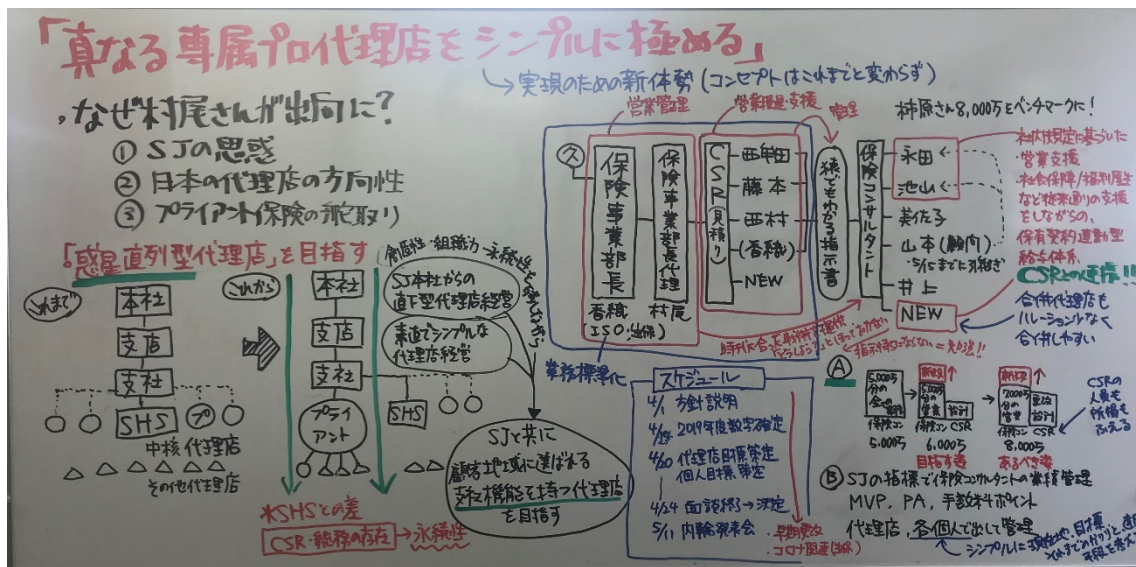 「真なる専属プロ代理店をシンプルに極める」
→実現のための新体勢(コンセプトはこれまでと変わらず)
・なぜ村尾さんが出向に?
① SJの思惑
② 日本の代理店の方向性
③ プライアント保険の舵取り
「惑星直列型代理店」を目指す
これまで
本社
支店
支社
SHS
プ
中核代理店
その他代理店
これから
本社
支店
支社
プライアント
SHS
*SHSとの差
CSR・総務の存在→永続性
SJ本社からの
直下型代理店経営
素直でシンプルな
代理店経営
SJと共に
顧客地域に選ばれる
支社機能を持つ代理店
を目指す
営業管理
営業推進・支援
管理
久
保険事業部長
香織
(ISO,
業務標準化
保険事業部長代理
村尾
CSR(見積り)
西村
藤本
(香織)
NEW
猿でもわかる指示書
保険コンサルタント
永田
池山
美佐子
山本
・5/15までに引継ぎ
井上
NEW
柿原さん8,000万をベンチマークに!
社内規定に基づいた
・営業支援
・社会保障/福利厚生
など従来通りの支援
をしながらの、
保有契約連動型
給与体系
CSRとの連携!!
合併代理店も
ハレーションなく
合併しやすい
スケジュール
4/1 方針説明
2019年度数字確定
4/20 代理店目標策定
個人目標策定
4/24 面談終了→決定
5/11 内輪発表会
・早期更改
・コロナ関連
Ⓐ
5,000万
保険コン
5,000万
新規
5,000万
分の営業
保険コン CSR
6,000万
目指す姿
新規
7,000万
分の営業
保険コン CSR
8,000万
あるべき姿
CSRの
人員も
所得も
ふえる
Ⓑ SJの指標で保険コンサルタントの業績管理
MVP、PA、手数料ポイント
代理店、各個人で出して管理
シンプルに現在地、目標、